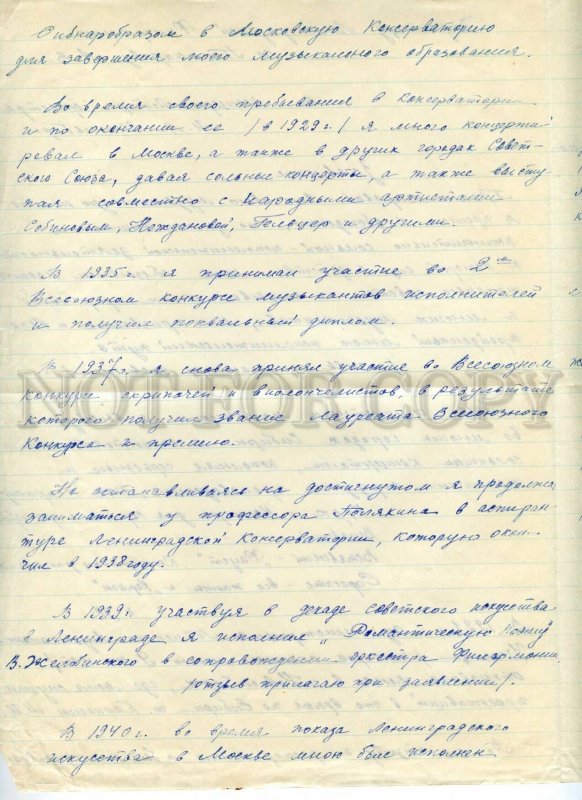 Сибнаробразом в Московскую Консерваторию
для завершения моего музыкального образования.
Во время своего пребывания в консерватории
и по окончании ее /в 1929 г./ я много концерти-
ровал в Москве, а также в других городах Совет-
ского Союза, давая сольные концерты, а также высту-
пая совместно с Народными артистами
Собиновым, Неждановой, Гельцер и другими.
В 1935 г. я принимал участие во 2ом
Всесоюзном конкурсе музыкантов исполнителей
и получил похвальный диплом.
В 1937 г. я снова принял участие во Всесоюзном
конкурсе скрипачей и виолончелистов, в результате
которого получил звание Лауреата Всесоюзного
Конкурса и премию.
NOT FOR COPY
Не останавливаясь на достигнутом я продолжал
заниматься у профессора Полякина в аспиран-
туре Ленинградской Консерватории, которую окон-
чил в 1938 году.
В 1939 г. участвуя в декаде советского искусства
в Ленинграде я исполнил „Романтическую Поэму"
В. Желобинского в сопровождении оркестра Филармонии
/отзыв прилагаю при заявлении/.
В 1940 г. во время показа Ленинградского
искусства в Москве мною был исполнен